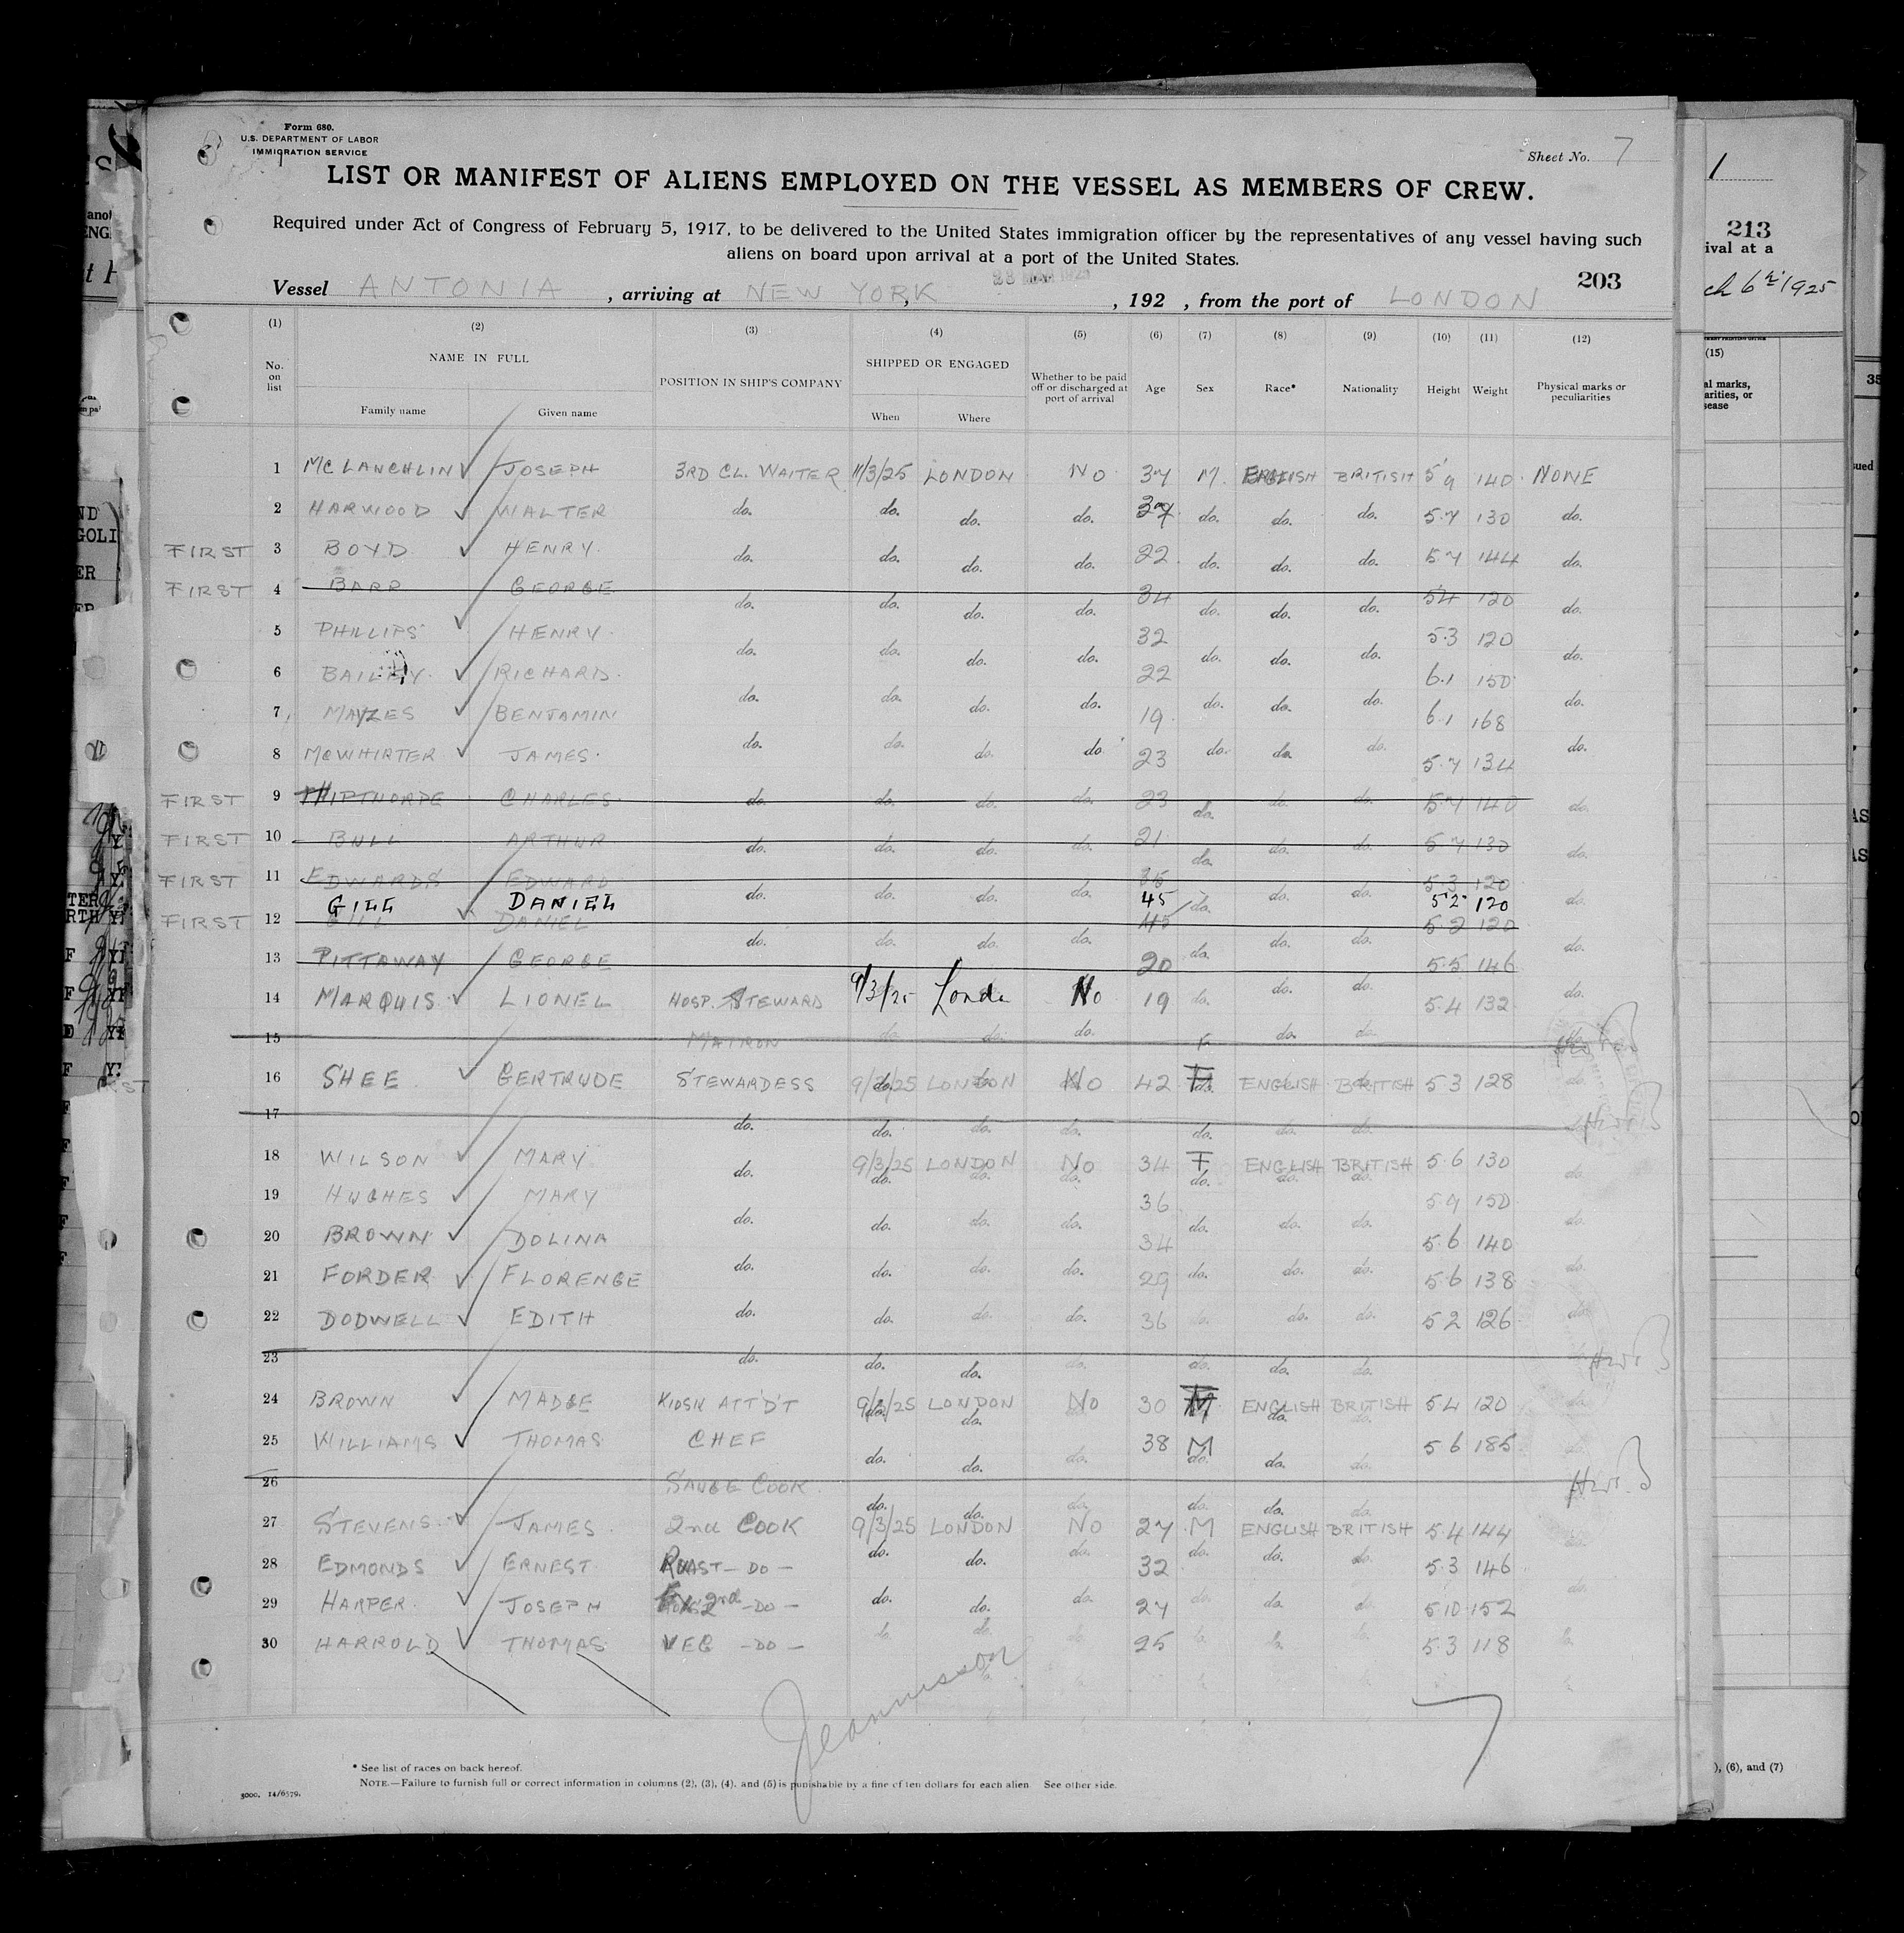 Form 680.
U.S. DEPARTMENT OF LABOR
IMMIGRATION SERVICE
Sheet No. 7
LIST OR MANIFEST OF ALIENS EMPLOYED ON THE VESSEL AS MEMBERS OF CREW.
Required under Act of Congress of February 5, 1917, to be delivered to the United States immigration officer by the representatives of any vessel having such
aliens on board upon arrival at a port of the United States.
203
Vessel ANTONIA, arriving at NEW YORK, , 192 , from the port of LONDON
(1) (2) (3) (4) (5) (6) (7) (8) (9) (10) (11) (12)
No. on list NAME IN FULL POSITION IN SHIP'S COMPANY SHIPPED OR ENGAGED Whether to be paid off or discharged at port of arrival Age Sex Race* Nationality Height Weight Physical marks or peculiarities
Family name Given name When Where
1 McLANCHLIN JOSEPH 3RD CL. WAITER 11/3/25 LONDON NO 37 M. ENGLISH BRITISH 5'9 140 NONE
2 HARWOOD WALTER do. do. do. do. do. do. do. 5.7 130 do.
FIRST 3 BOYD HENRY. do. do. do. do. 22 do. do. do. 5.7 144 do.
FIRST 4 BARR GEORGE do. do. do. do. 34 do. do. do. 54 120 do.
5 PHILLIPS HENRY. do. do. do. do. 32 do. do. do. 5.3 120 do.
6 BAILEY. RICHARD. do. do. do. do. 22 do. do. do. 6.1 150 do.
7 MAYZES BENJAMIN do. do. do. do. 19 do. do. do. 6.1 168 do.
8 McWHIRTER JAMES. 23 5.7 134
FIRST 9 THIPTHORPE CHARLES. do. do. do. do. 23 do. do. do. 5.7 140 do.
FIRST 10 BULL ARTHUR do. do. do. do. 21 do. do. do. 5.7 130 do.
FIRST 11 EDWARDS EDWARD do. do. do. do. 35 do. do. do. 5.3 120 do.
GILL DANIEL 45 5.2 120
FIRST 12 GILL DANIEL do. do. do. do. 45 do. do. do. 5.2 120 do.
13 PITTAWAY GEORGE 20 5.5 146
14 MARQUIS LIONEL HOSP. STEWARD 9/3/25 No 19 do. do. do. 5.4 132 do.
15 MATRON do. do. do. F. do. do.
16 SHEE GERTRUDE STEWARDESS 9/3/25 LONDON NO 42 F ENGLISH BRITISH 5.3 128 do.
17 do. do. do. do. do. do. do.
18 WILSON MARY 9/3/25 LONDON No 34 F ENGLISH BRITISH 5.6 130
19 HUGHES MARY do. do. do. do. 36 do. do. do. 5.9 150 do.
20 BROWN DOLINA do. do. do. do. 34 do. do. do. 5.6 140 do.
21 FORDER FLORENCE do. do. do. do. 29 do. do. do. 5.6 138 do.
22 DODWELL EDITH do. do. do. do. 36 do. do. do. 5.2 126 do.
23 do. do. do. do. do. do. do.
24 BROWN MADGE KIOSK ATT'D'T 9/3/25 LONDON No 30 ENGLISH BRITISH 5.4 120 do.
25 WILLIAMS THOMAS CHEF do. do. do. 38 M do. do. 5.6 185 do.
26 SAUCE COOK. do. do. do. do. do. do.
27 STEVENS. JAMES. 2nd COOK 9/3/25 LONDON NO 27 M ENGLISH BRITISH 5.4 144 do.
28 EDMONDS ERNEST. ROAST – DO – do. do. do. 32 do. do. do. 5.3 146 do.
29 HARPER. JOSEPH 2nd – DO – do. do. do. 27 do. do. do. 5.10 152
30 HARROLD THOMAS VEG – DO – do. do. 25 5.3 118
* See list of races on back hereof.
NOTE.—Failure to furnish full or correct information in columns (2), (3), (4), and (5) is punishable by a fine of ten dollars for each alien. See other side.
5000. 14/6579.
213
ival at a
ch 6th 1925
(15)
al marks,
arities, or
sease
), (6), and (7)